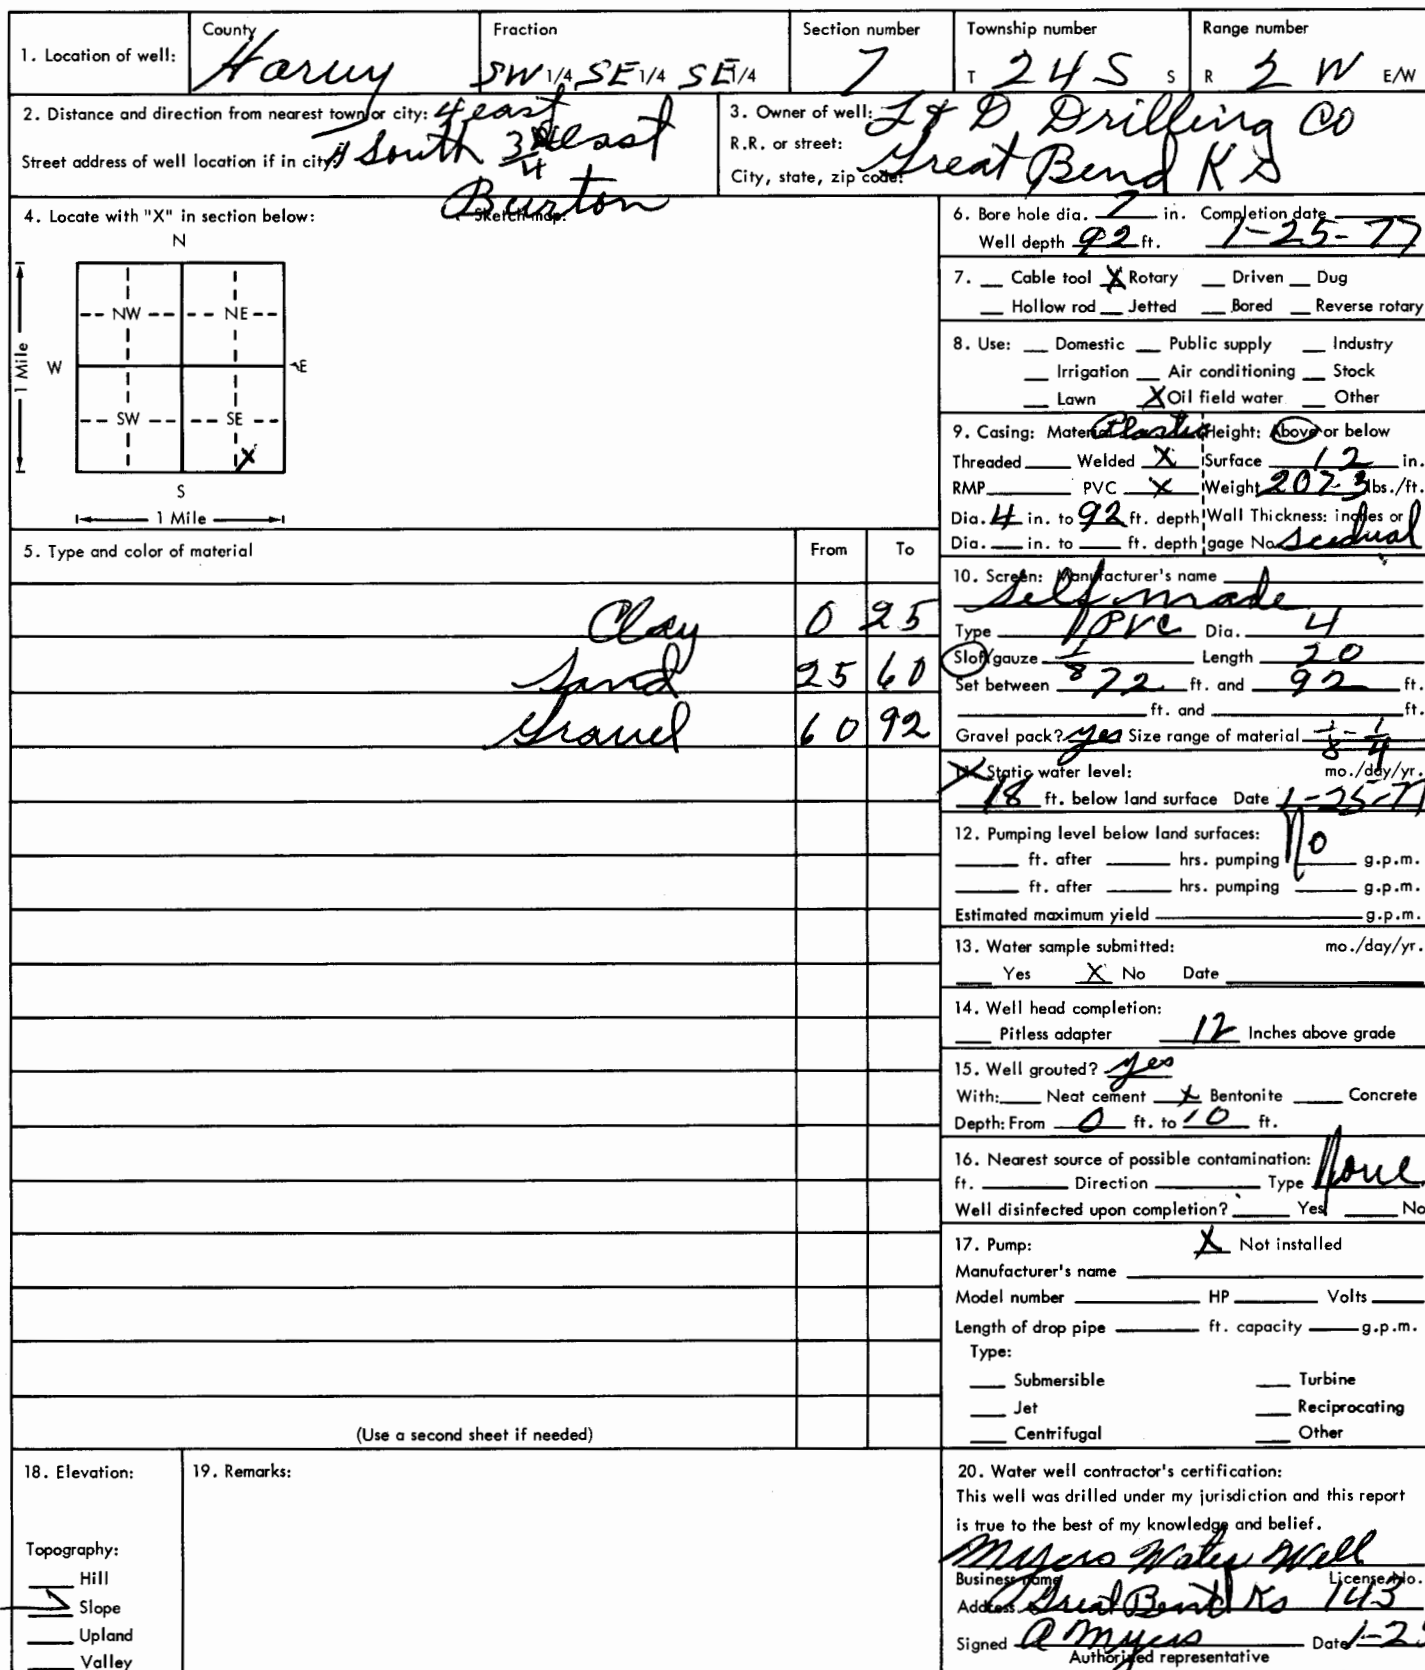 1. Location of well: County Fraction Section number Township number Range number
Harvey SW 1/4 SE 1/4 SE 1/4 7 T 24 S S R 2 W E/W
2. Distance and direction from nearest town or city: 4 east
Street address of well location if in city: South 3/4 east
Burton
3. Owner of well: L & D Drilling Co
R.R. or street:
City, state, zip code: Great Bend KS
4. Locate with "X" in section below: Sketch map:
N
NW NE
W E
1 Mile
SW SE
X
S
1 Mile
5. Type and color of material From To
Clay 0 25
Sand 25 60
Gravel 60 92
(Use a second sheet if needed)
6. Bore hole dia. 7 in. Completion date
Well depth 92 ft. 1-25-77
7. Cable tool X Rotary Driven Dug
Hollow rod Jetted Bored Reverse rotary
8. Use: Domestic Public supply Industry
Irrigation Air conditioning Stock
Lawn X Oil field water Other
9. Casing: Material Plastic Height: Above or below
Threaded Welded X Surface 12 in.
RMP PVC X Weight 207-3 lbs./ft.
Dia. 4 in. to 92 ft. depth Wall Thickness: inches or
Dia. in. to ft. depth gage No. scedual
10. Screen: Manufacturer's name
Self made
Type PVC Dia. 4
Slot/gauze 1/8 Length 20
Set between 72 ft. and 92 ft.
ft. and ft.
Gravel pack? yes Size range of material 1/8 - 1/4
Static water level: mo./day/yr.
18 ft. below land surface Date 1-25-77
12. Pumping level below land surfaces:
ft. after hrs. pumping No g.p.m.
ft. after hrs. pumping g.p.m.
Estimated maximum yield g.p.m.
13. Water sample submitted: mo./day/yr.
Yes X No Date
14. Well head completion:
Pitless adapter 12 Inches above grade
15. Well grouted? yes
With: Neat cement X Bentonite Concrete
Depth: From 0 ft. to 10 ft.
16. Nearest source of possible contamination:
ft. Direction Type None
Well disinfected upon completion? Yes No
17. Pump: X Not installed
Manufacturer's name
Model number HP Volts
Length of drop pipe ft. capacity g.p.m.
Type:
Submersible Turbine
Jet Reciprocating
Centrifugal Other
18. Elevation:
Topography:
Hill
Slope
Upland
Valley
19. Remarks:
20. Water well contractor's certification:
This well was drilled under my jurisdiction and this report
is true to the best of my knowledge and belief.
Myers Water Well
Business name License No.
Address Great Bend Ks 143
Signed A Myers Date 1-2
Authorized representative